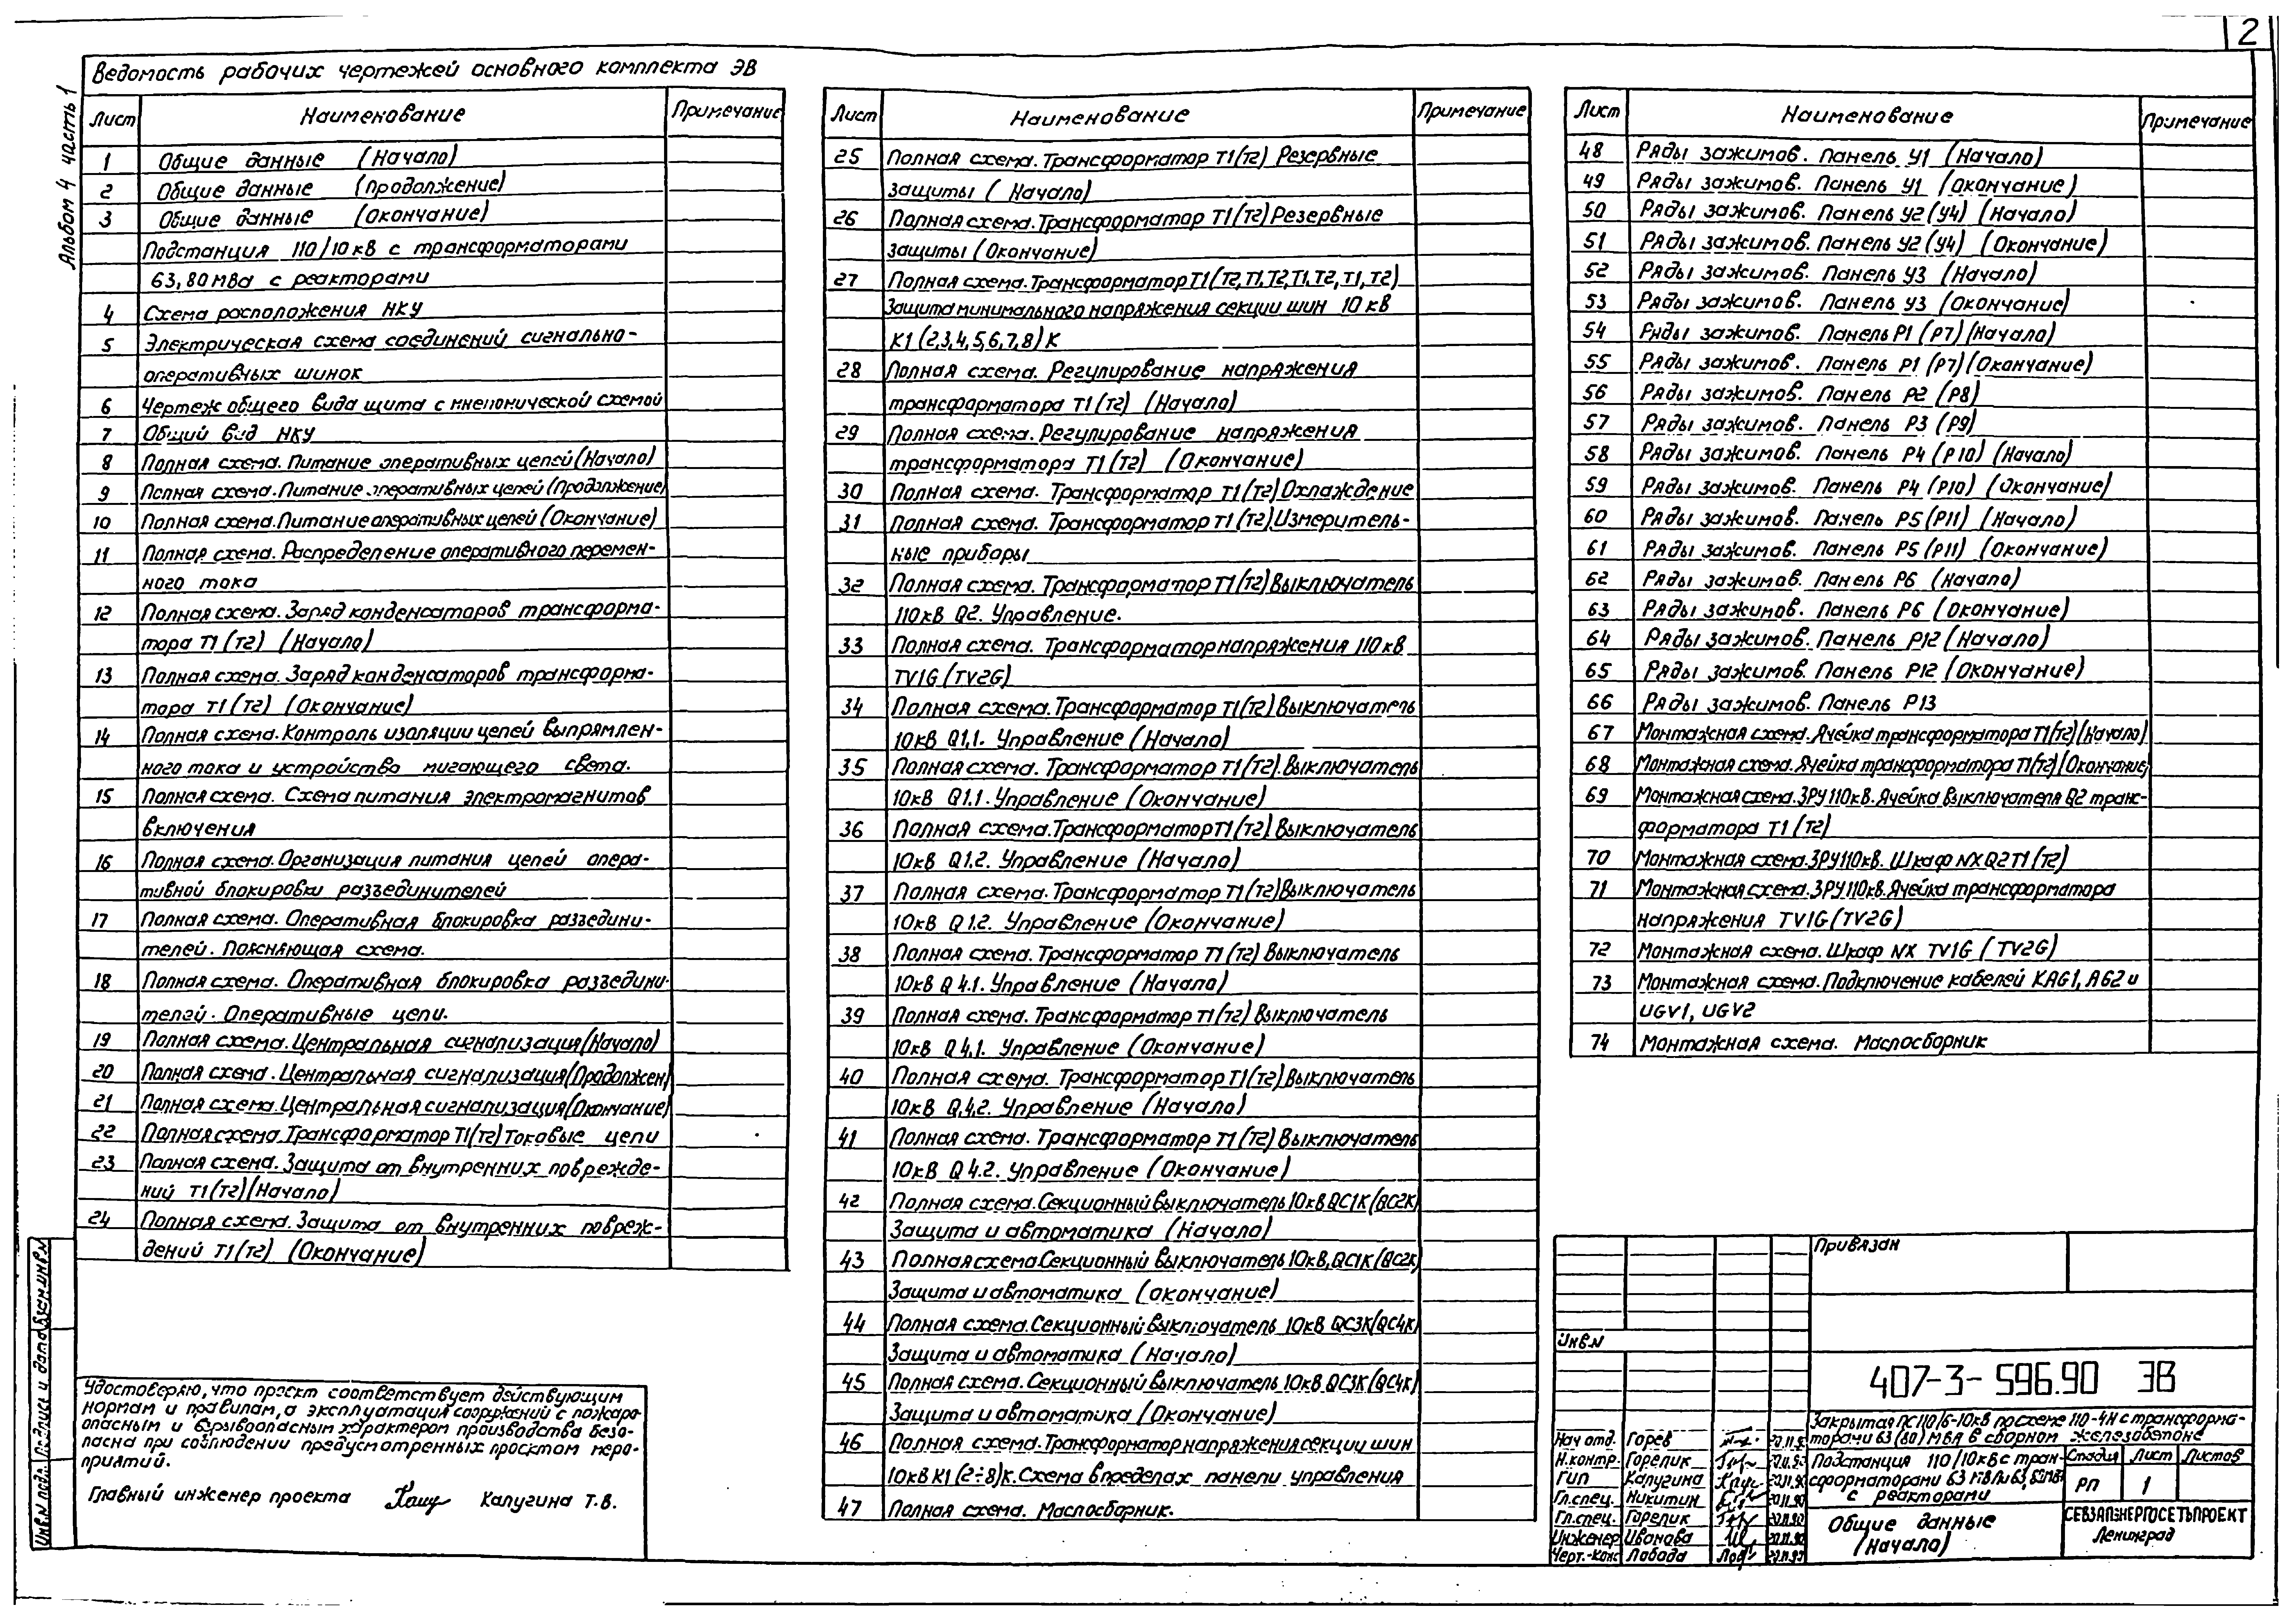 2
Альбом 4 часть 1
Ведомость рабочих чертежей основного комплекта ЭВ
Лист Наименование Примечание
1 Общие данные (Начало)
2 Общие данные (Продолжение)
3 Общие данные (Окончание)
Подстанция 110/10 кВ с трансформаторами
63,80 мВа с реакторами
4 Схема расположения НКУ
5 Электрическая схема соединений сигнально-
оперативных шинок
6 Чертеж общего вида щита с мнемонической схемой
7 Общий вид НКУ
8 Полная схема. Питание оперативных цепей (Начало)
9 Полная схема. Питание оперативных цепей (Продолжение)
10 Полная схема. Питание оперативных цепей (Окончание)
11 Полная схема. Распределение оперативного перемен-
ного тока
12 Полная схема. Заряд конденсаторов трансформа-
тора Т1(Т2) (Начало)
13 Полная схема. Заряд конденсаторов трансформа-
тора Т1(Т2) (Окончание)
14 Полная схема. Контроль изоляции цепей выпрямлен-
ного тока и устройство мигающего света.
15 Полная схема. Схема питания электромагнитов
включения
16 Полная схема. Организация питания цепей опера-
тивной блокировки разъединителей
17 Полная схема. Оперативная блокировка разъедини-
телей. Поясняющая схема.
18 Полная схема. Оперативная блокировка разъедини-
телей. Оперативные цепи.
19 Полная схема. Центральная сигнализация (Начало)
20 Полная схема. Центральная сигнализация (Продолжен)
21 Полная схема. Центральная сигнализация (Окончание)
22 Полная схема. Трансформатор Т1(Т2) Токовые цепи
23 Полная схема. Защита от внутренних поврежде-
ний Т1(Т2) (Начало)
24 Полная схема. Защита от внутренних повреж-
дений Т1(Т2) (Окончание)
Лист Наименование Примечание
25 Полная схема. Трансформатор Т1(Т2) Резервные
защиты (Начало)
26 Полная схема. Трансформатор Т1(Т2) Резервные
защиты (Окончание)
27 Полная схема. Трансформатор Т1(Т2,Т1,Т2,Т1,Т2,Т1,Т2)
Защита минимального напряжения секции шин 10 кВ
К1(2,3,4,5,6,7,8)К
28 Полная схема. Регулирование напряжения
трансформатора Т1(Т2) (Начало)
29 Полная схема. Регулирование напряжения
трансформатора Т1(Т2) (Окончание)
30 Полная схема. Трансформатор Т1(Т2) Охлаждение
31 Полная схема. Трансформатор Т1(Т2) Измеритель-
ные приборы
32 Полная схема. Трансформатор Т1(Т2) Выключатель
110кВ Q2. Управление.
33 Полная схема. Трансформатор напряжения 110 кВ
TV1G (TV2G)
34 Полная схема. Трансформатор Т1(Т2) Выключатель
10кВ Q1.1. Управление (Начало)
35 Полная схема. Трансформатор Т1(Т2). Выключатель
10кВ Q1.1. Управление (Окончание)
36 Полная схема. Трансформатор Т1(Т2). Выключатель
10кВ Q1.2. Управление (Начало)
37 Полная схема. Трансформатор Т1(Т2) Выключатель
10кВ Q1.2. Управление (Окончание)
38 Полная схема. Трансформатор Т1(Т2) Выключатель
10кВ Q4.1. Управление (Начало)
39 Полная схема. Трансформатор Т1(Т2) Выключатель
10кВ Q4.1. Управление (Окончание)
40 Полная схема. Трансформатор Т1(Т2) Выключатель
10кВ Q.4.2. Управление (Начало)
41 Полная схема. Трансформатор Т1(Т2) Выключатель
10кВ Q4.2. Управление (Окончание)
42 Полная схема. Секционный выключатель 10кВ QC1K (QC2K)
Защита и автоматика (Начало)
43 Полная схема. Секционный выключатель 10кВ, QC1K (QC2K)
Защита и автоматика (окончание)
44 Полная схема. Секционный выключатель 10кВ QC3K (QC4K)
Защита и автоматика (Начало)
45 Полная схема. Секционный выключатель 10кВ QC3K (QC4K)
Защита и автоматика (Окончание)
46 Полная схема. Трансформатор напряжения секции шин
10кВ К1(2÷8)К. Схема в пределах панели управления
47 Полная схема. Маслосборник.
Лист Наименование Примечание
48 Ряды зажимов. Панель У1 (Начало)
49 Ряды зажимов. Панель У1 (Окончание)
50 Ряды зажимов. Панель У2 (У4) (Начало)
51 Ряды зажимов. Панель У2 (У4) (Окончание)
52 Ряды зажимов. Панель У3 (Начало)
53 Ряды зажимов. Панель У3 (Окончание)
54 Ряды зажимов. Панель Р1 (Р7) (Начало)
55 Ряды зажимов. Панель Р1 (Р7) (Окончание)
56 Ряды зажимов. Панель Р2 (Р8)
57 Ряды зажимов. Панель Р3 (Р9)
58 Ряды зажимов. Панель Р4 (Р10) (Начало)
59 Ряды зажимов. Панель Р4 (Р10) (Окончание)
60 Ряды зажимов. Панель Р5 (Р11) (Начало)
61 Ряды зажимов. Панель Р5 (Р11) (Окончание)
62 Ряды зажимов. Панель Р6 (Начало)
63 Ряды зажимов. Панель Р6 (Окончание)
64 Ряды зажимов. Панель Р12 (Начало)
65 Ряды зажимов. Панель Р12 (Окончание)
66 Ряды зажимов. Панель Р13
67 Монтажная схема. Ячейка трансформатора Т1(Т2) (Начало)
68 Монтажная схема. Ячейка трансформатора Т1(Т2) (Окончание)
69 Монтажная схема. ЗРУ 110кВ. Ячейка выключателя Q2 транс-
форматора Т1(Т2)
70 Монтажная схема. ЗРУ 110кВ. Шкаф NXQ2T1(Т2)
71 Монтажная схема. ЗРУ 110кВ. Ячейка трансформатора
напряжения TV1G (TV2G)
72 Монтажная схема. Шкаф NX TV1G (TV2G)
73 Монтажная схема. Подключение кабелей KAG1, AG2 и
UGV1, UGV2
74 Монтажная схема. Маслосборник
Удостоверяю, что проект соответствует действующим
нормам и правилам, а эксплуатация сооружений с пожаро-
опасным и взрывоопасным характером производства безо-
пасна при соблюдении предусмотренных проектом меро-
приятий.
Главный инженер проекта Калугина Т.В.
Инв.N подл. Подпись и дата Взам.инв.N
Привязан
Инв.N
407-3-596.90 ЭВ
Закрытая ПС 110/6-10кВ по схеме 110-4Н с трансформа-
торами 63 (80) МВА в сборном железобетоне
Нач отд. Горев
Н.контр. Горелик
Гип Калугина
Гл.спец. Никитин
Гл.спец. Горелик
Инженер Иванова
Черт.-конс Лабада
Подстанция 110/10кВ с тран-
сформаторами 63
с реакторами
Стадия Лист Листов
РП 1
Общие данные
(Начало)
СЕВЗАПЭНЕРГОСЕТЬПРОЕКТ
Ленинград